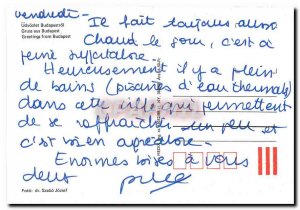 vendredi -
Üdvözlet Budapestről
Gruss aus Budapest
Greetings from Budapest
Il fait toujours aussi
Chaud le jour, c'est à
peine
Heureusement il y a plein
de bains (piscines d'eau thermale)
dans cette ville qui permettent
de se rafraîchir un peu et
c'est bien agréable.
Enormes bises à vous
deux
Fotó: dr. Szabó József